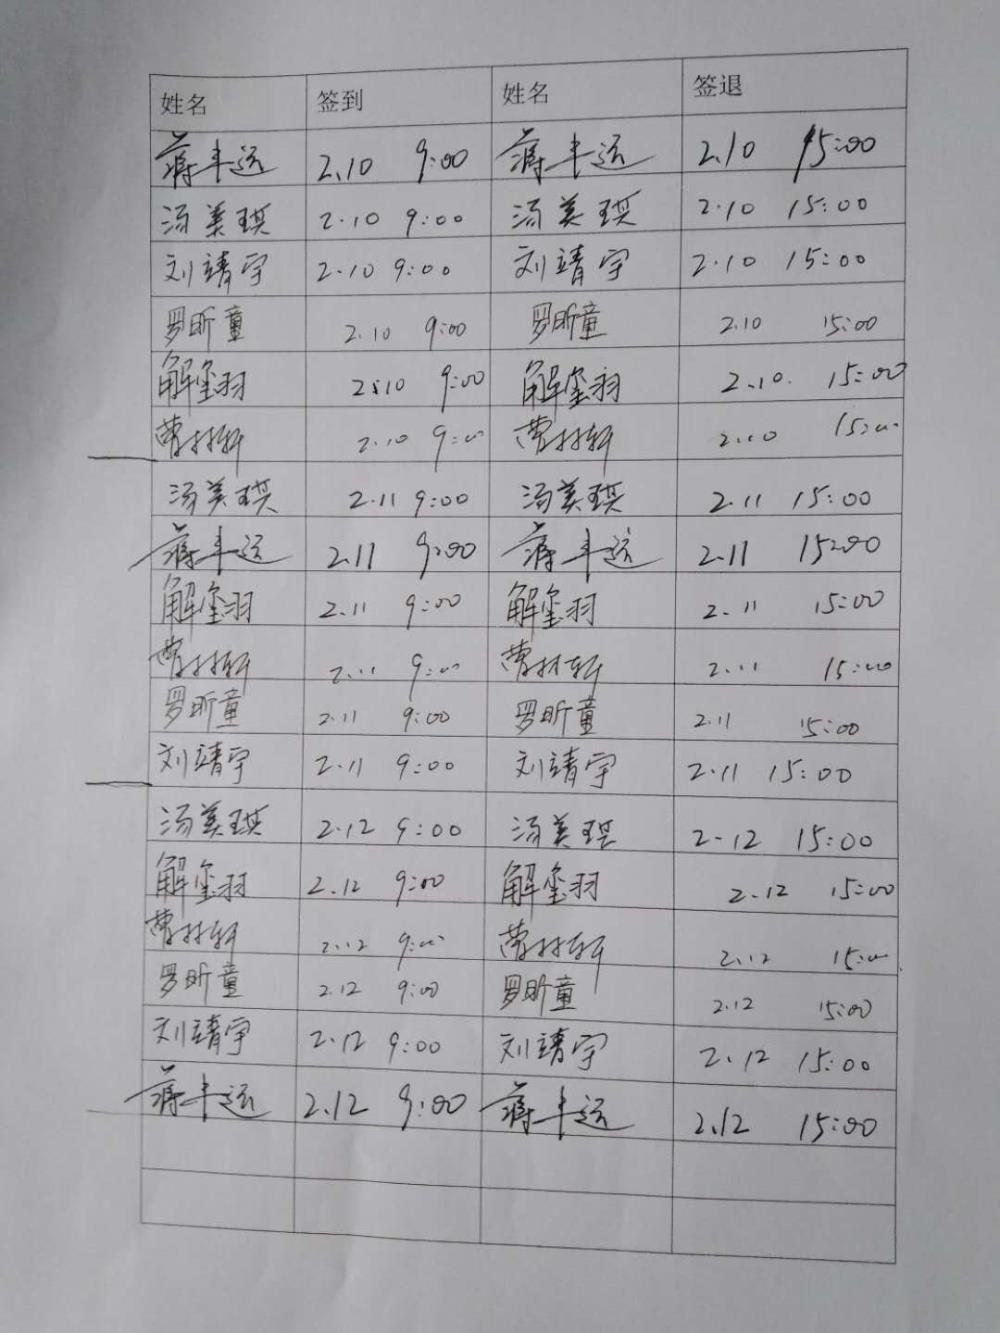 姓名 签到 姓名 签退
蒋丰远 2.10 9:00 蒋丰远 2.10 15:00
汤美琪 2.10 9:00 汤美琪 2.10 15:00
刘靖宇 2.10 9:00 刘靖宇 2.10 15:00
罗昕童 2.10 9:00 罗昕童 2.10 15:00
解玺羽 2.10 9:00 解玺羽 2.10. 15:00
曹林轩 2.10 9:00 曹林轩 2.10 15:00
汤美琪 2.11 9:00 汤美琪 2.11 15:00
蒋丰远 2.11 9:00 蒋丰远 2.11 15:00
解玺羽 2.11 9:00 解玺羽 2.11 15:00
曹林轩 2.11 9:00 曹林轩 2.11 15:00
罗昕童 2.11 9:00 罗昕童 2.11 15:00
刘靖宇 2.11 9:00 刘靖宇 2.11 15:00
汤美琪 2.12 9:00 汤美琪 2.12 15:00
解玺羽 2.12 9:00 解玺羽 2.12 15:00
曹林轩 2.12 9:00 曹林轩 2.12 15:00
罗昕童 2.12 9:00 罗昕童 2.12 15:00
刘靖宇 2.12 9:00 刘靖宇 2.12 15:00
蒋丰远 2.12 9:00 蒋丰远 2.12 15:00